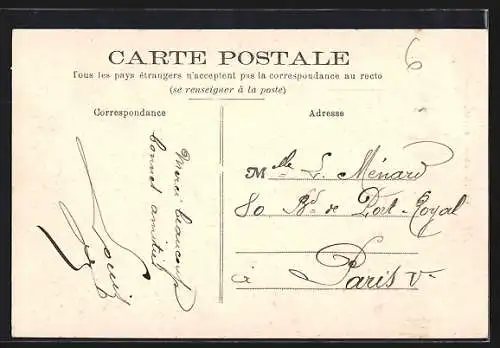 CARTE POSTALE
Tous les pays étrangers n'acceptent pas la correspondance au recto
(se renseigner à la poste)
6
Correspondance
Merci beaucoup
bonnes amitiés
Louis
Adresse
Mlle L. Ménard
80 Bd de Port-Royal
à Paris V